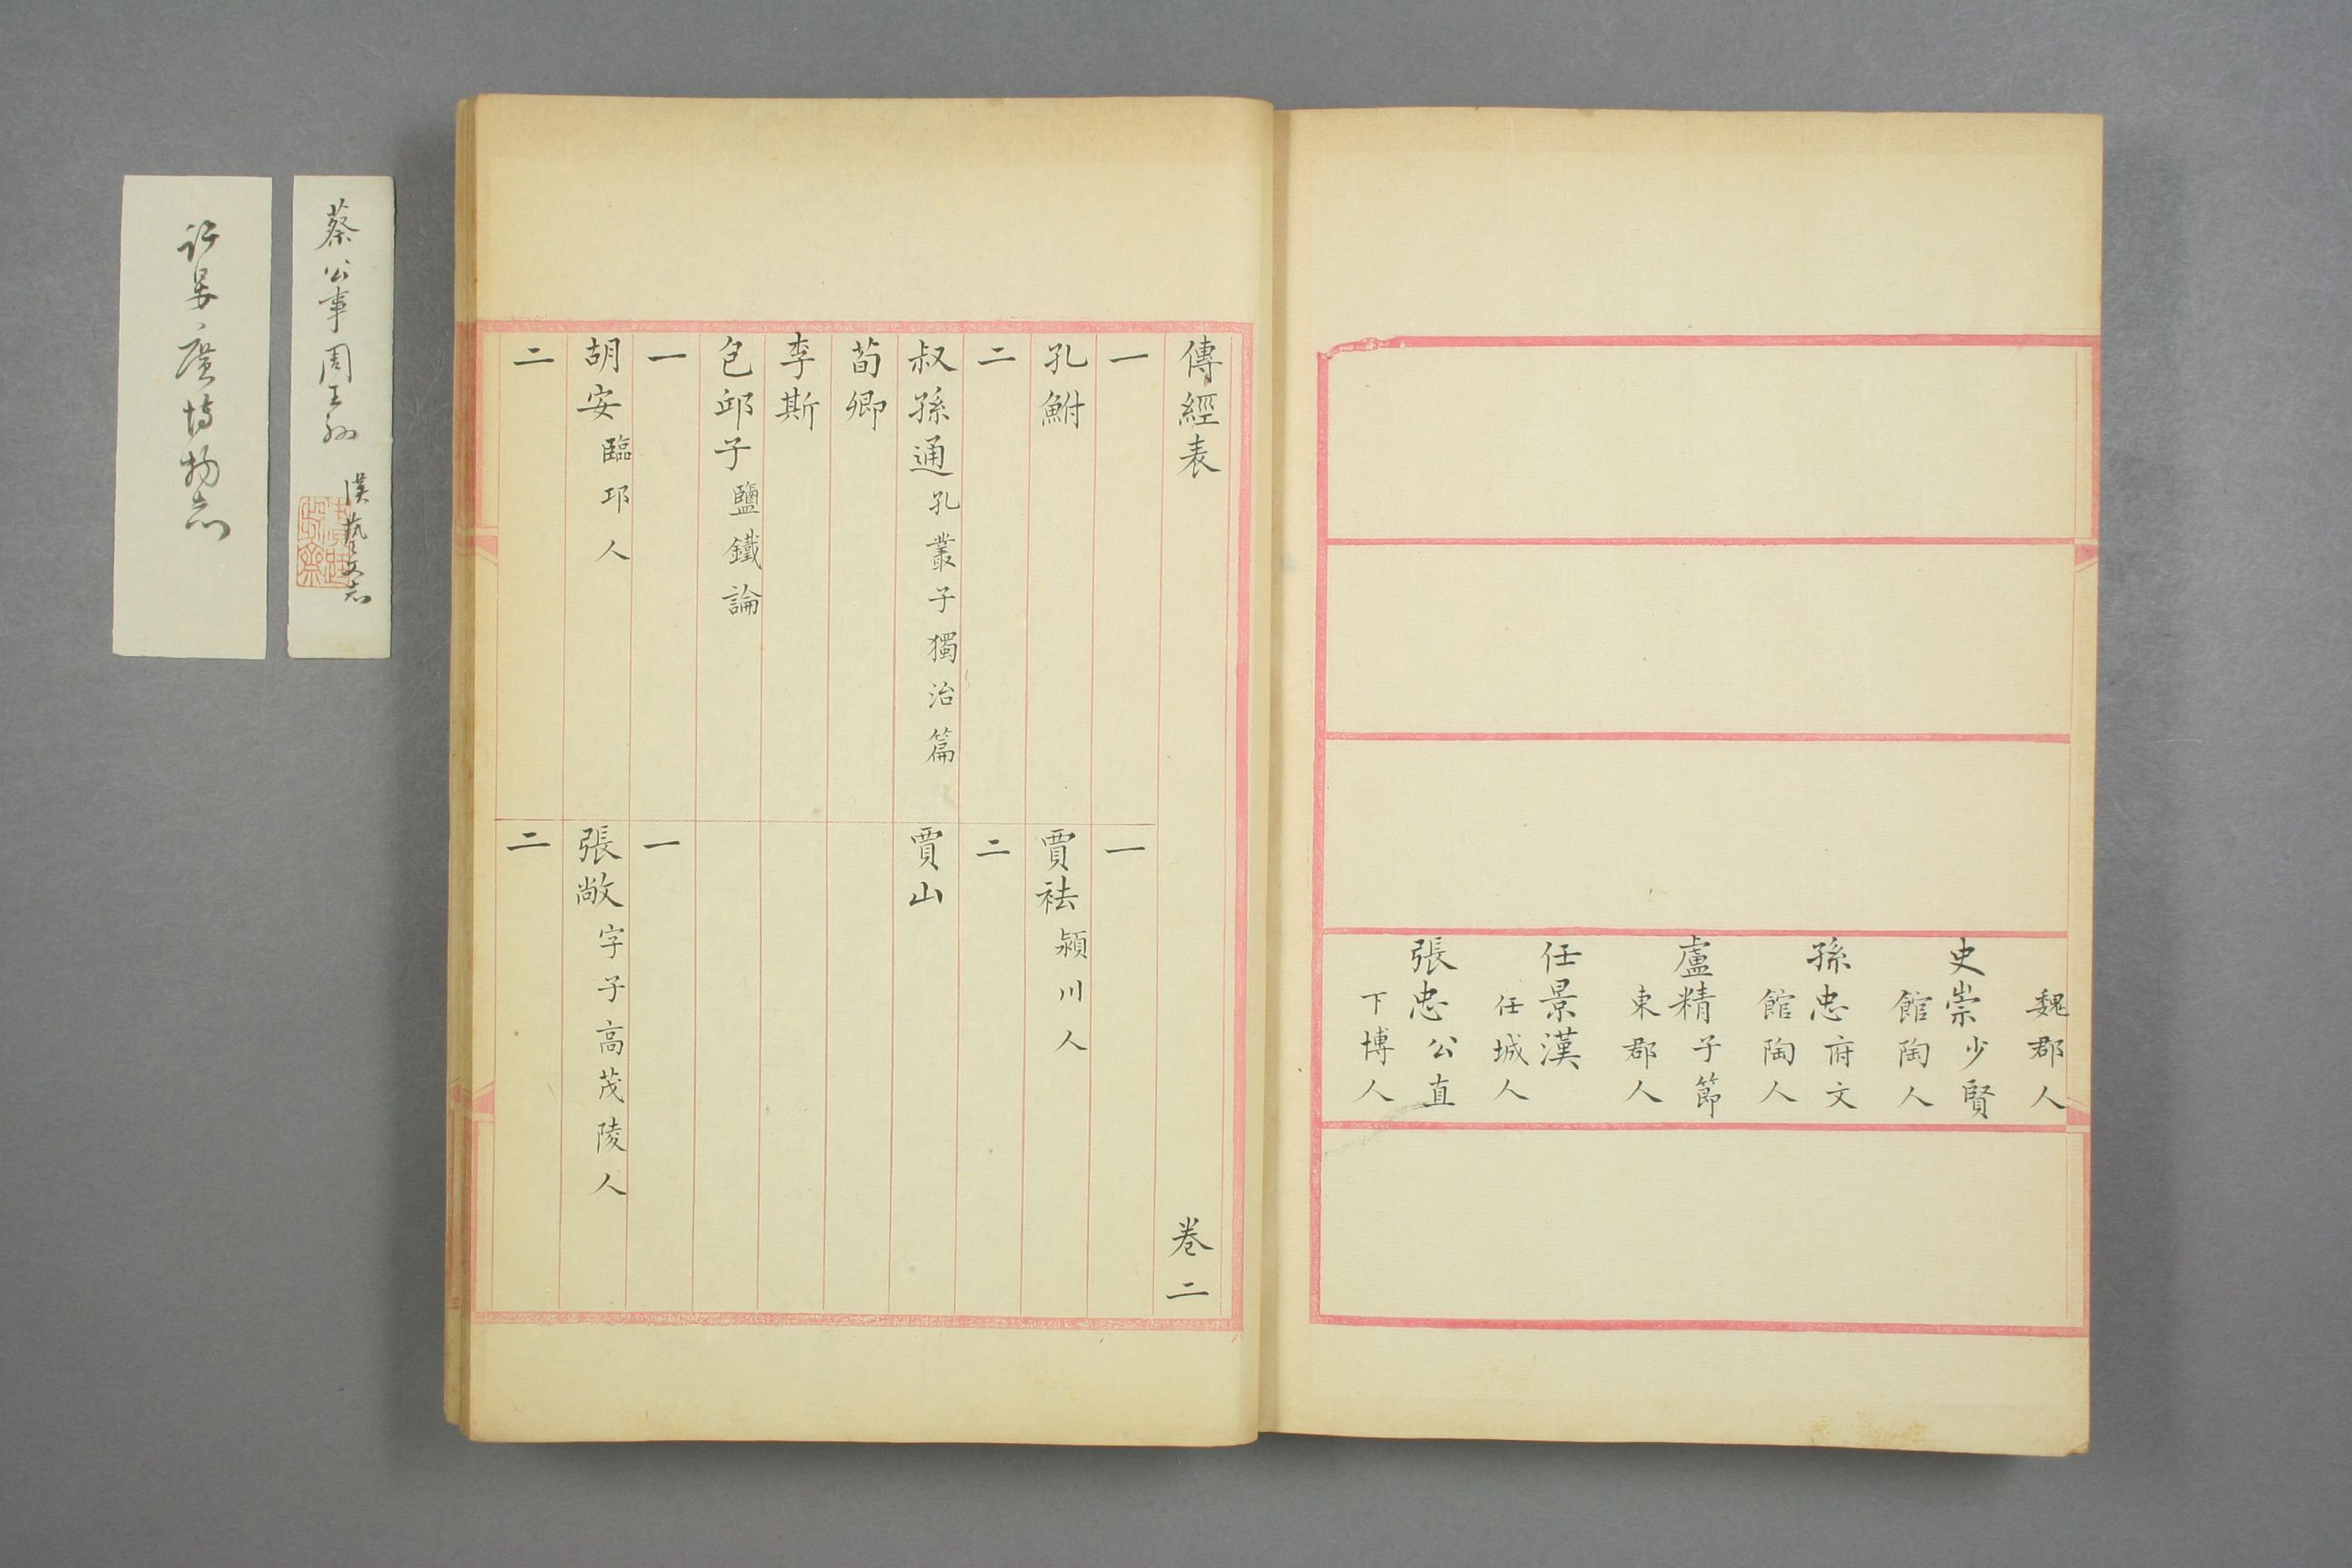 魏郡人
史崇少賢
館陶人
孫忠府文
館陶人
盧精子節
東郡人
任景漢
任城人
張忠公直
下博人
傳經表 卷二
一
孔鮒
二
叔孫通孔叢子獨治篇
荀卿
李斯
包邱子鹽鐵論
一
胡安臨邛人
二
一
賈袪潁川人
二
賈山
一
張敞字子高茂陵人
二
蔡公事周王孫 漢藝文志
廣博物志